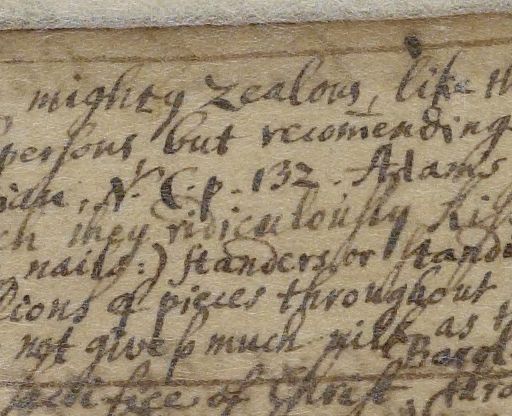 mighty zealous, like th
persons but recomending
ian, N. C. p. 132. Adams
ch they ridiculously kis
nails:) standers or stand
lions of pieces throughout
not give so much milk, as th
Barol
sacrifice of Christ.